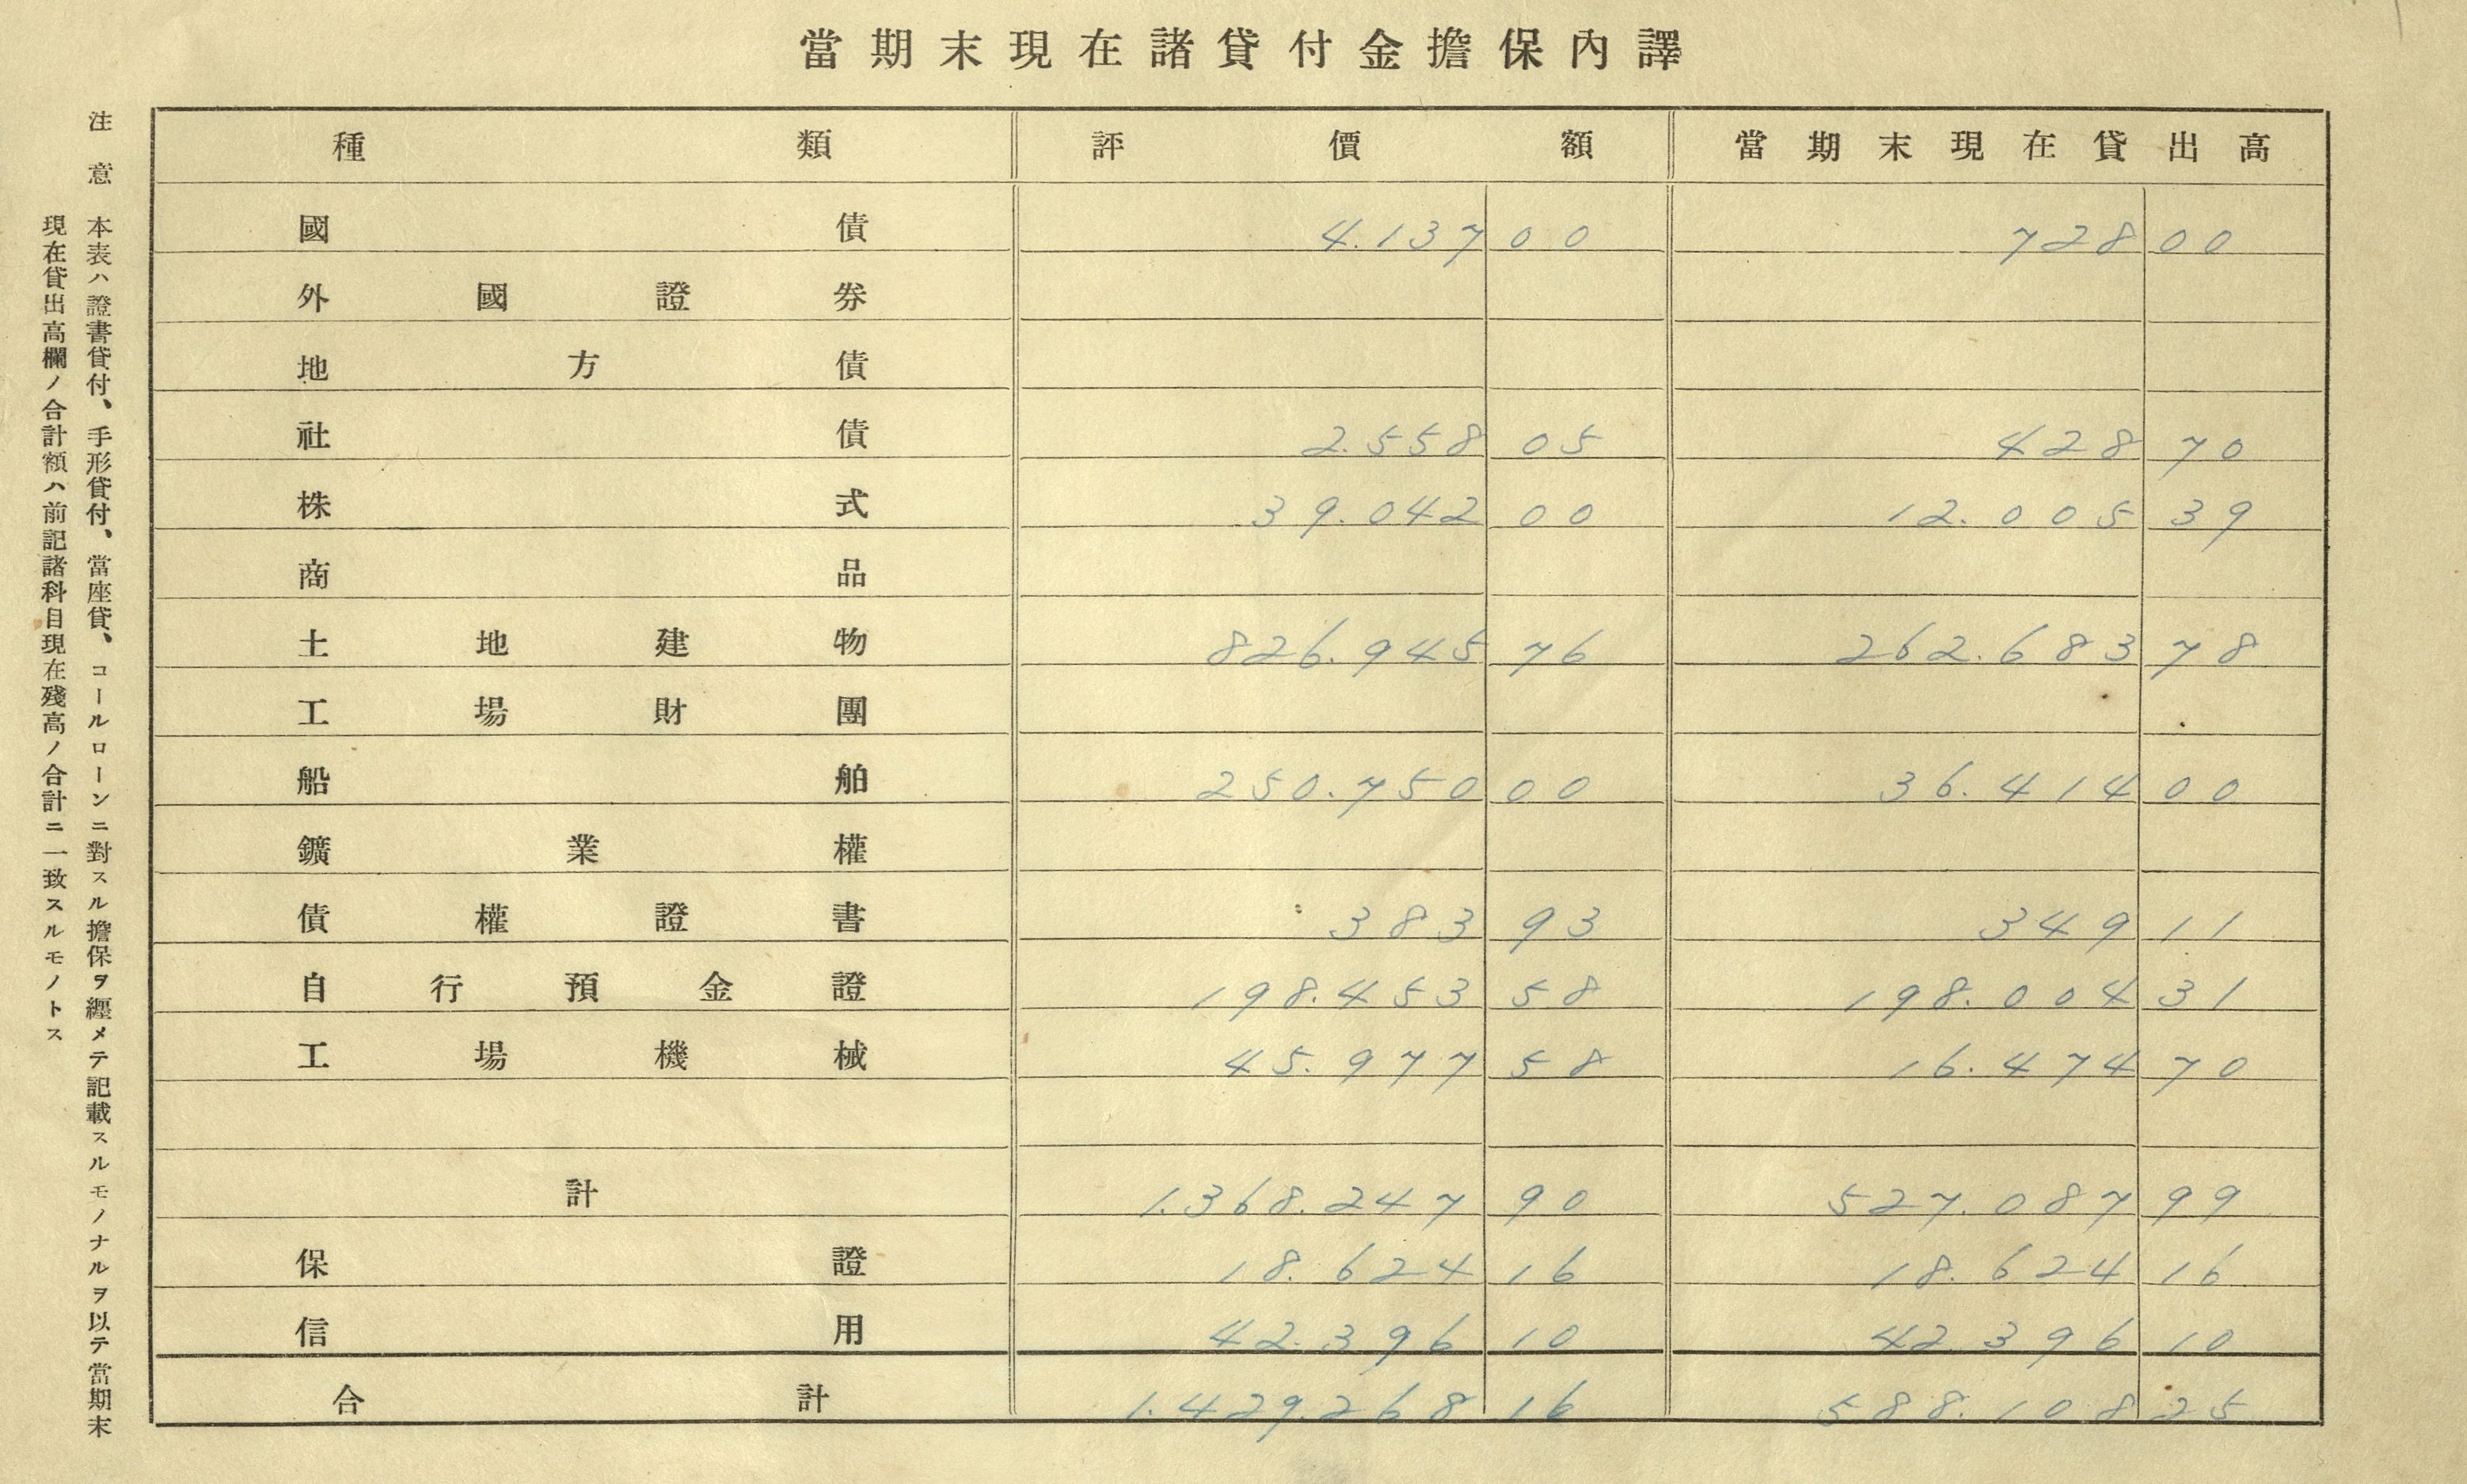 當期末現在諸貸付金擔保內譯
種類 評價額 當期末現在貸出高
國債 4.137 00 728 00
外國證券
地方債
社債 2.558 05 428 70
株式 39.042 00 12.005 39
商品
土地建物 826.945 76 262.683 78
工場財團
船舶 250.750 00 36.414 00
鑛業權
債權證書 383 93 349 11
自行預金證 198.453 58 198.004 31
工場機械 45.977 58 16.474 70
計 1.368.247 90 527.087 99
保證 18.624 16 18.624 16
信用 42.396 10 42.396 10
合計 1.429.268 16 588.108 25
注意 本表ハ證書貸付、手形貸付、當座貸、コールローンニ對スル擔保ヲ纒メテ記載スルモノナルヲ以テ當期末
現在貸出高欄ノ合計額ハ前記諸科目現在殘高ノ合計ニ一致スルモノトス